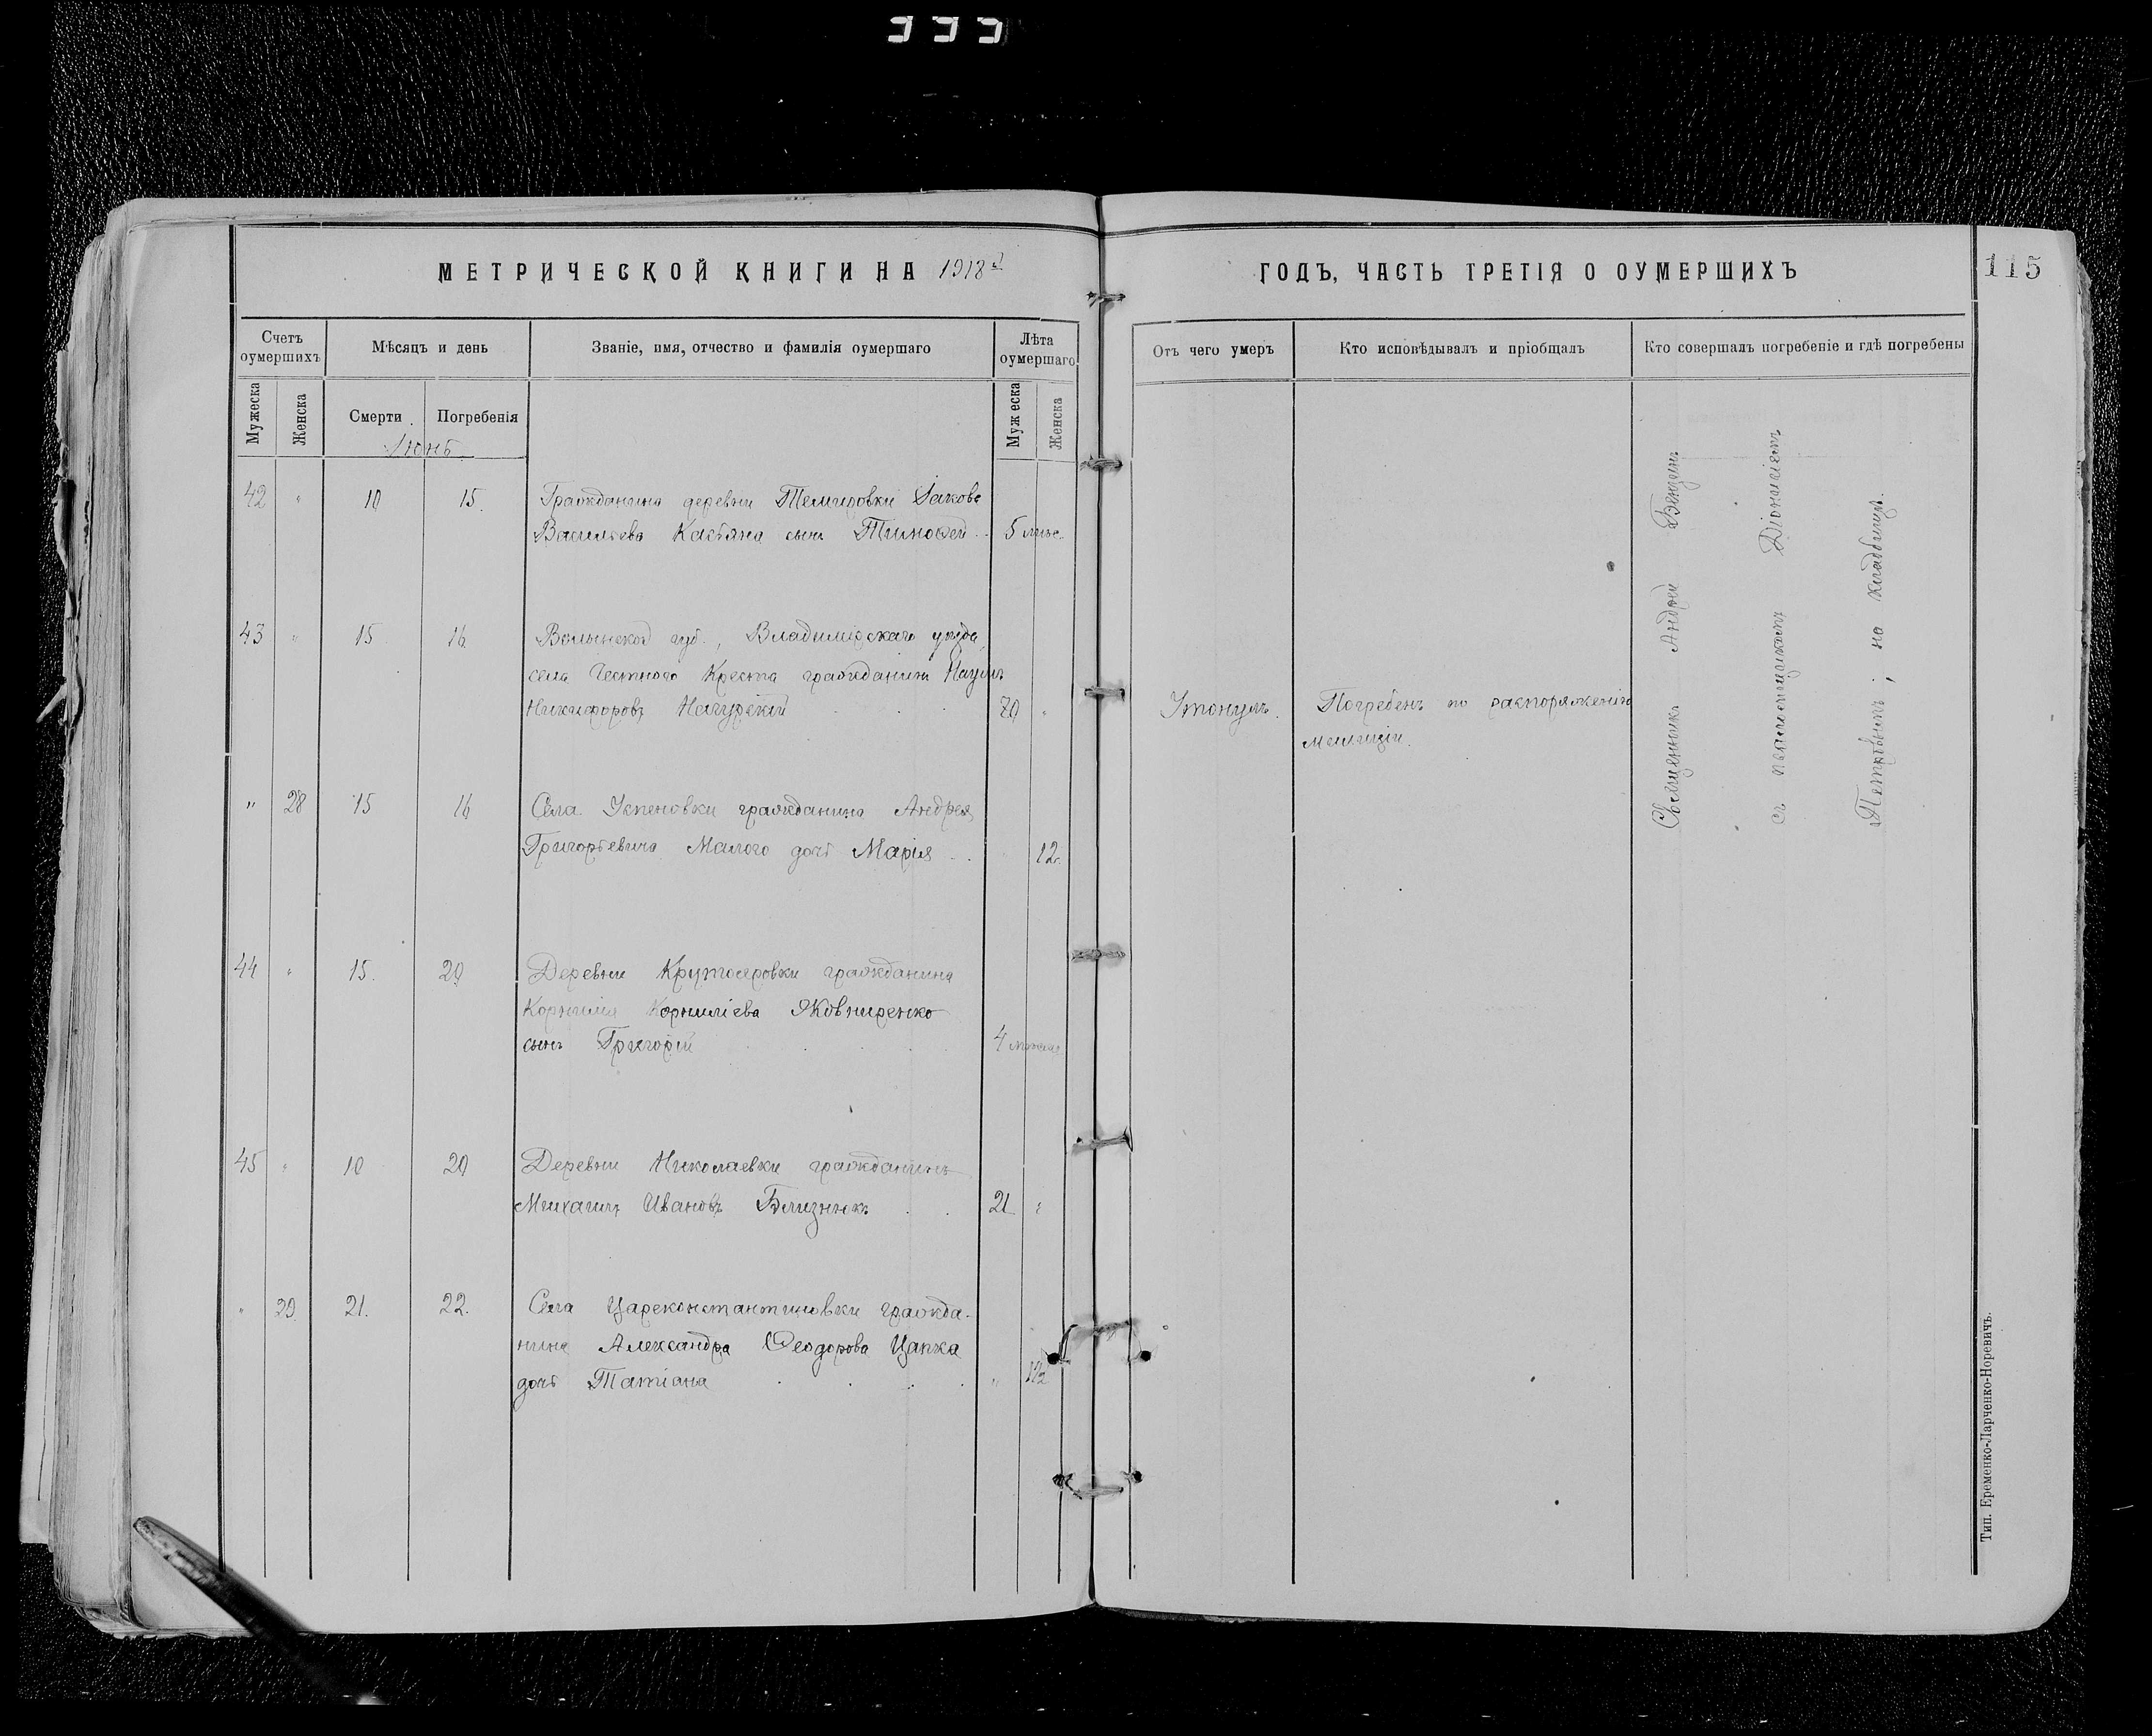 МЕТРИЧЕСКОЙ КНИГИ НА 1918 г
ГОДЪ, ЧАСТЬ ТРЕТІЯ О ОУМЕРШИХЪ
115
Счетъ оумершихъ
Мѣсяцъ и день
Званіе, имя, отчество и фамилія оумершаго
Лѣта оумершаго
Отъ чего умеръ
Кто исповѣдывалъ и пріобщалъ
Кто совершалъ погребеніе и гдѣ погребены
Мужеска
Женска
Смерти
Погребенія
Мужеска
Женска
Іюнь
42 " 10 15. Гражданина деревни Темировки Іакова
Васильева Касьяна сынъ Тимофей 5 мѣс.
43 " 15 16. Волынской губ., Владимірскаго уѣзда,
села Честного Креста гражданинъ Наумъ
Никифоровъ 20 " Утонулъ. Погребенъ по распоряженію
милиціи.
" 28 15 16 Села Успеновки гражданина Андрея
Григорьевича Малого дочь Марія 12.
44 " 15. 20 Деревни Крутояровки гражданина
Корнилія Корниліева Яковниренко
сынъ Григорій 4 мѣсяца
45 " 10 20 Деревни Николаевки гражданинъ
Михаилъ Ивановъ Близнюкъ 21 "
" 29. 21. 22. Села Цареконстантиновки гражда-
нина Александра Феодорова Цапка
дочь Татіана " 1 1/2
Священникъ Андрей
съ псаломщикомъ Діонисіемъ
Петровымъ; на кладбищѣ.
Тип. Еременко-Ларченко-Норевичъ.